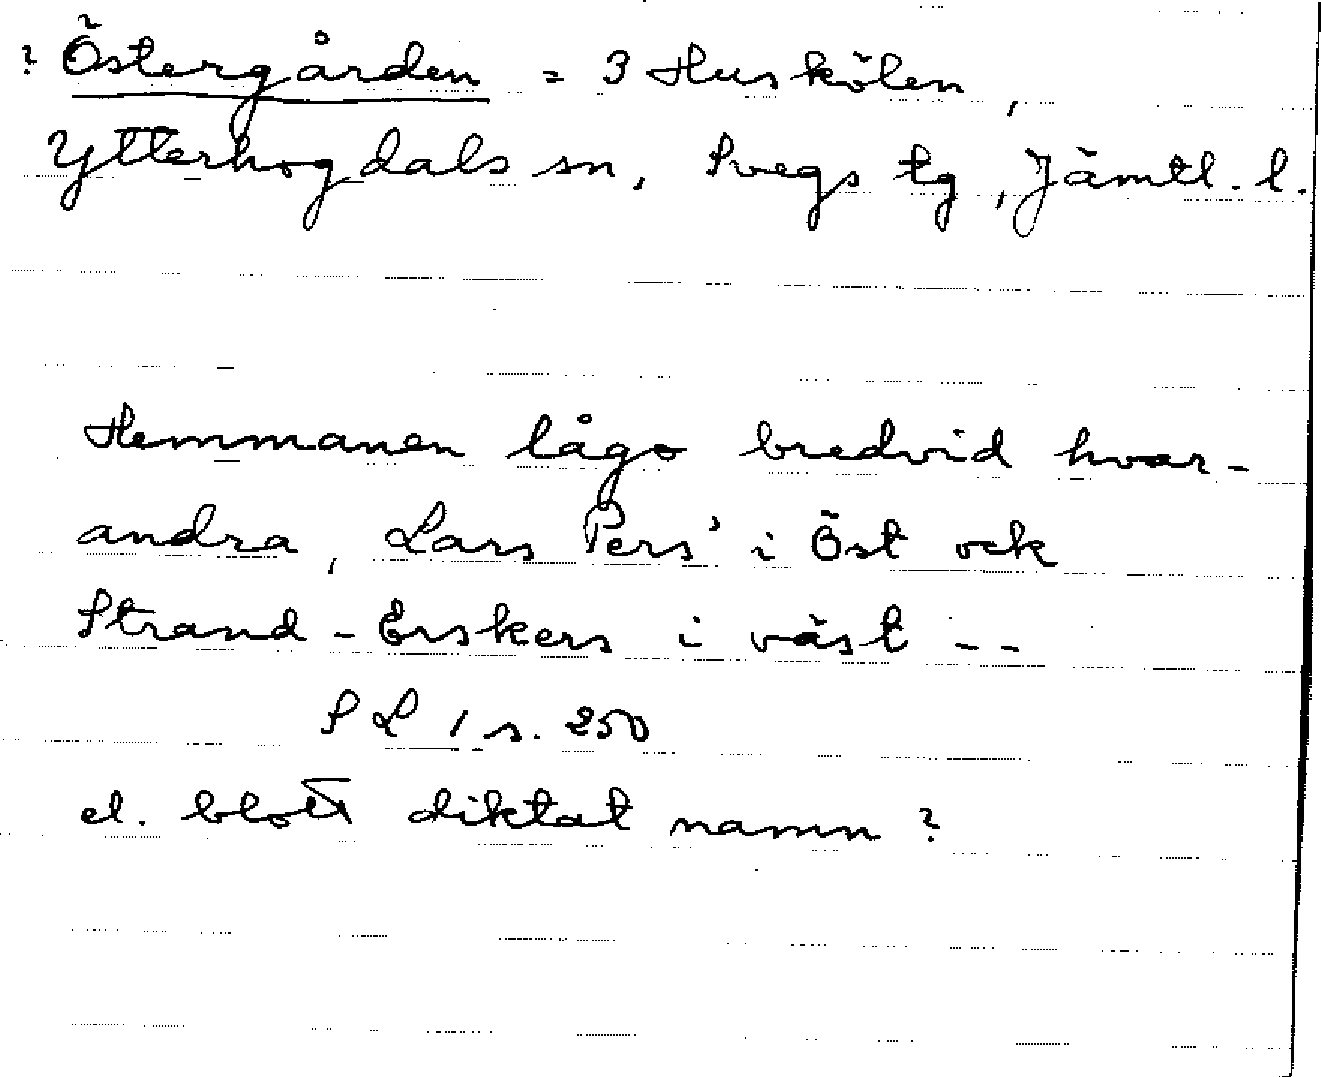 ? Östergården = 3 Huskölen,
Ytterhogdals sn, Svegs tg, Jämtl. l.
Hemmanen lågo bredvid hvar-
andra, Lars Pers' i Öst ock
Strand-Erskers i väst --
SL 1 s. 250
el. blott diktat namn ?